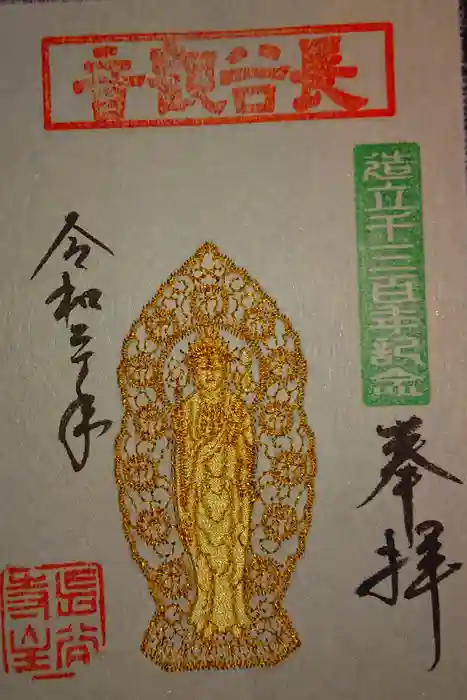 長谷観音
造立千三百年紀念
奉拝
令和二年
長谷寺主